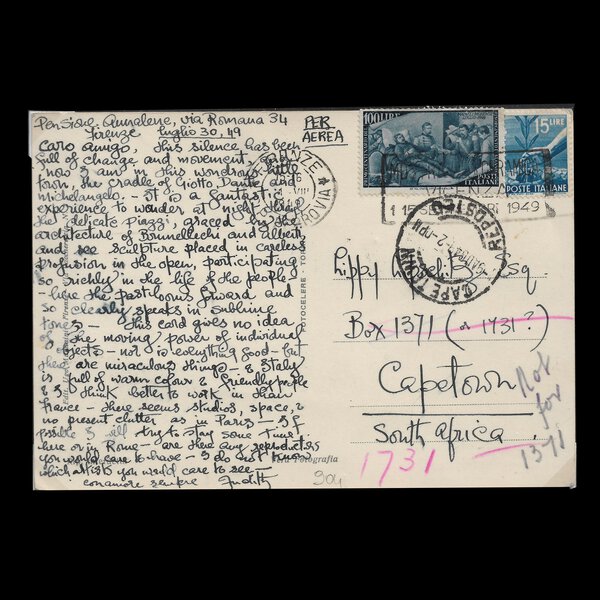 Pensione Annalene, via Romana 34
Firenze luglio 30, 49
PER
AEREA
Caro amigo, This silence has been
full of change and movement, and
now I am in this wondrous little
town, the cradle of Giotto, Dante and
Michelangelo. - It is a fantastic
experience to wander at night thru
the delicate Piazzi, graced by the
architecture of Brunellechi and Alberti,
and see sculpture placed in careless
profusion in the open, participating
so richly in the life of the people
- here the past looms forward and
so clearly speaks in sublime
- This card gives no idea
of the moving power of individual
objects - not is everything good - but
there are miraculous things - & Italy
is full of warm colour & friendly people
& I think better to work in than
France - there seems studios, space, &
no present clutter as in Paris - If
possible I will try to stay some time
here or in Rome - are there any reproductions
you would care to have - I do not know
which artists you would care to see -
con amore sempre Judith
100 LIRE
POSTE
ITALIANE
15 LIRE
POSTE ITALIANE
VICENZA
1 15 SET 1949
CAPETOWN
REPOSTED
Lippy Lipschitz Esq
Box 1371 (or 1731?)
Capetown
South Africa.
1731
Not
for
1371
FOTOCELERE - TORINO
Vera Fotografia
904